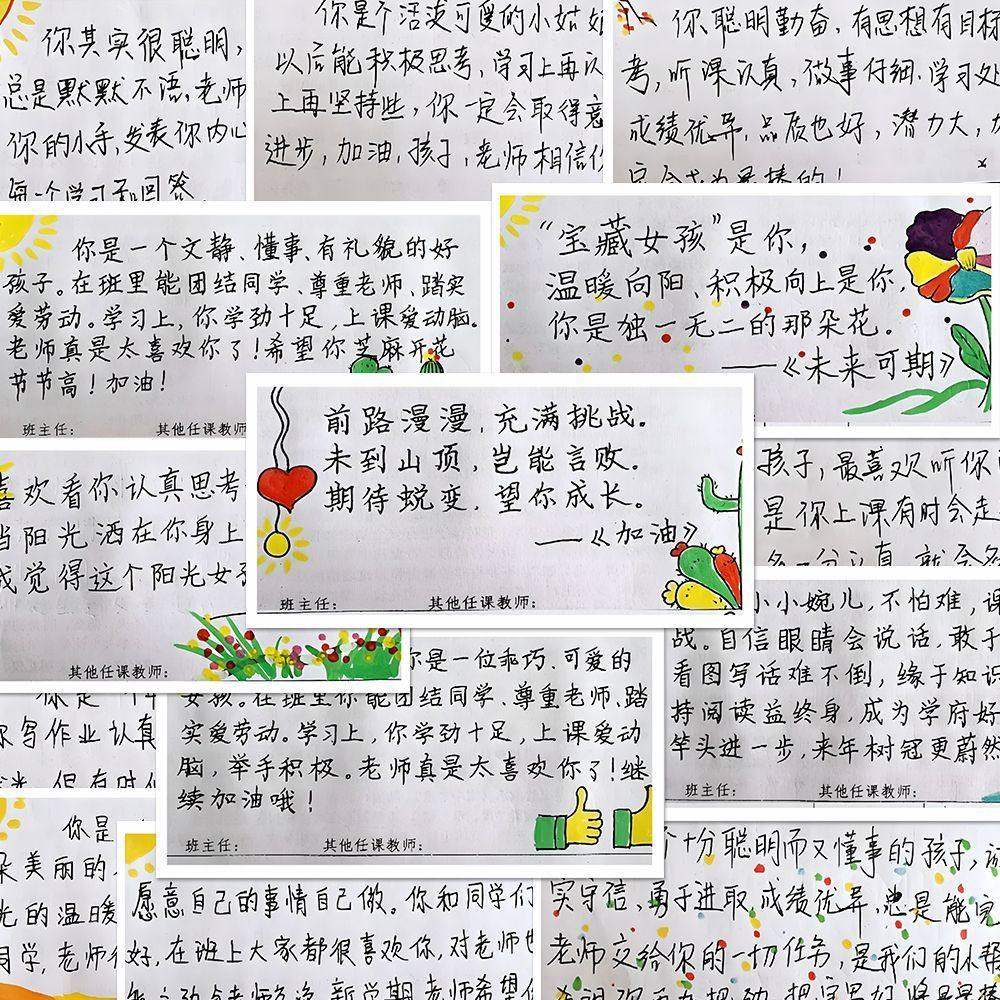 你其实很聪明,
总是默默不语,老师
你的小手,发表你内心
每一个学习和回答
你是个活泼可爱的小姑娘
以后能积极思考,学习上再认
上再坚持些,你一定会取得意
进步,加油,孩子,老师相信你
你聪明勤奋,有思想有目标
考,听课认真,做事仔细.学习处
成绩优异,品质也好,潜力大,
定会成为最棒的!
你是一个文静、懂事、有礼貌的好
孩子。在班里能团结同学、尊重老师、踏实
爱劳动。学习上,你学劲十足,上课爱动脑。
老师真是太喜欢你了!希望你芝麻开花
节节高!加油!
班主任:
其他任课教师
“宝藏女孩”是你,
温暖向阳、积极向上是你,
你是独一无二的那朵花。
——《未来可期》
前路漫漫,充满挑战。
未到山顶,岂能言败。
期待蜕变,望你成长。
——《加油》
班主任:
其他任课教师:
喜欢看你认真思考
当阳光洒在你身上
我觉得这个阳光女孩
其他任课教师:
孩子,最喜欢听你
是你上课有时会走
多一分认真,就会多
小小婉儿,不怕难,课
战。自信眼睛会说话,敢于
看图写话难不倒,缘于知识
持阅读益终身,成为学府好
竿头进一步,来年树冠更蔚然
班主任:
其他任课教师:
你是一个
你写作业认真
但有时候
你是一位乖巧、可爱的
女孩。在班里你能团结同学、尊重老师、踏
实爱劳动。学习上,你学劲十足,上课爱动
脑,举手积极。老师真是太喜欢你了!继
续加油哦!
班主任:
其他任课教师:
你是
朵美丽的
光的温暖
同学,老师
愿意自己的事情自己做。你和同学们
好,在班上大家都很喜欢你,对老师也
新学期老师希望你
个十分聪明而又懂事的孩子,诚
实守信、勇于进取,成绩优异,总是能完
老师交给你的一切任务,是我们的小帮